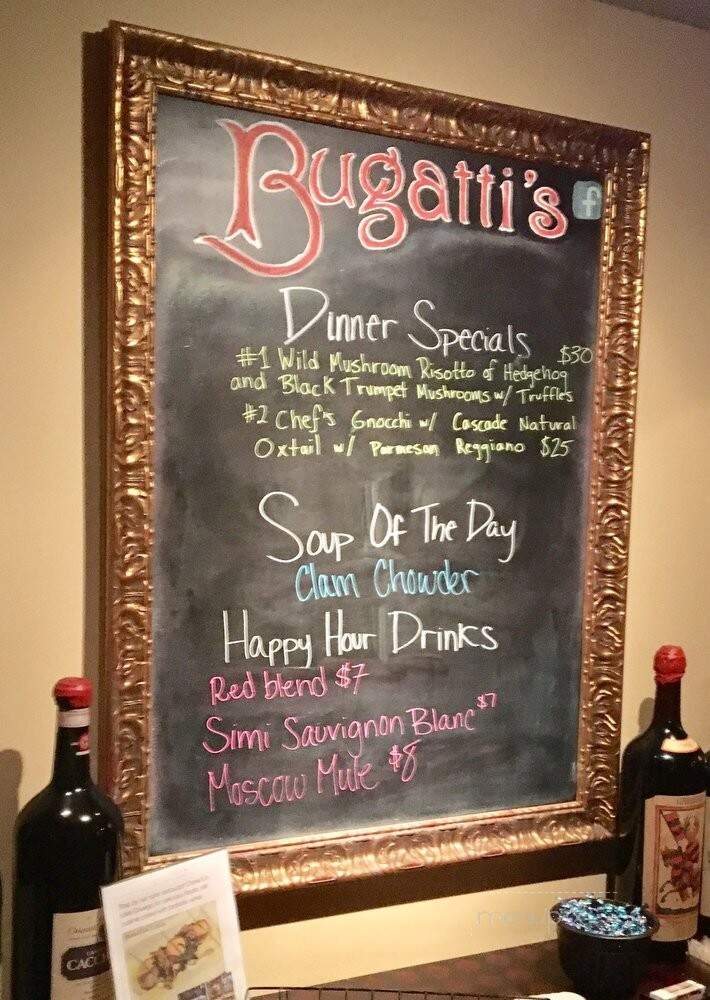 Bugatti's f
Dinner Specials
#1 Wild Mushroom Risotto of Hedgehog $30
and Black Trumpet Mushrooms w/ Truffles
#2 Chef's Gnocchi w/ Cascade Natural
Oxtail w/ Parmesan Reggiano $25
Soup Of The Day
Clam Chowder
Happy Hour Drinks
Red blend $7
Simi Sauvignon Blanc $7
Moscow Mule $8